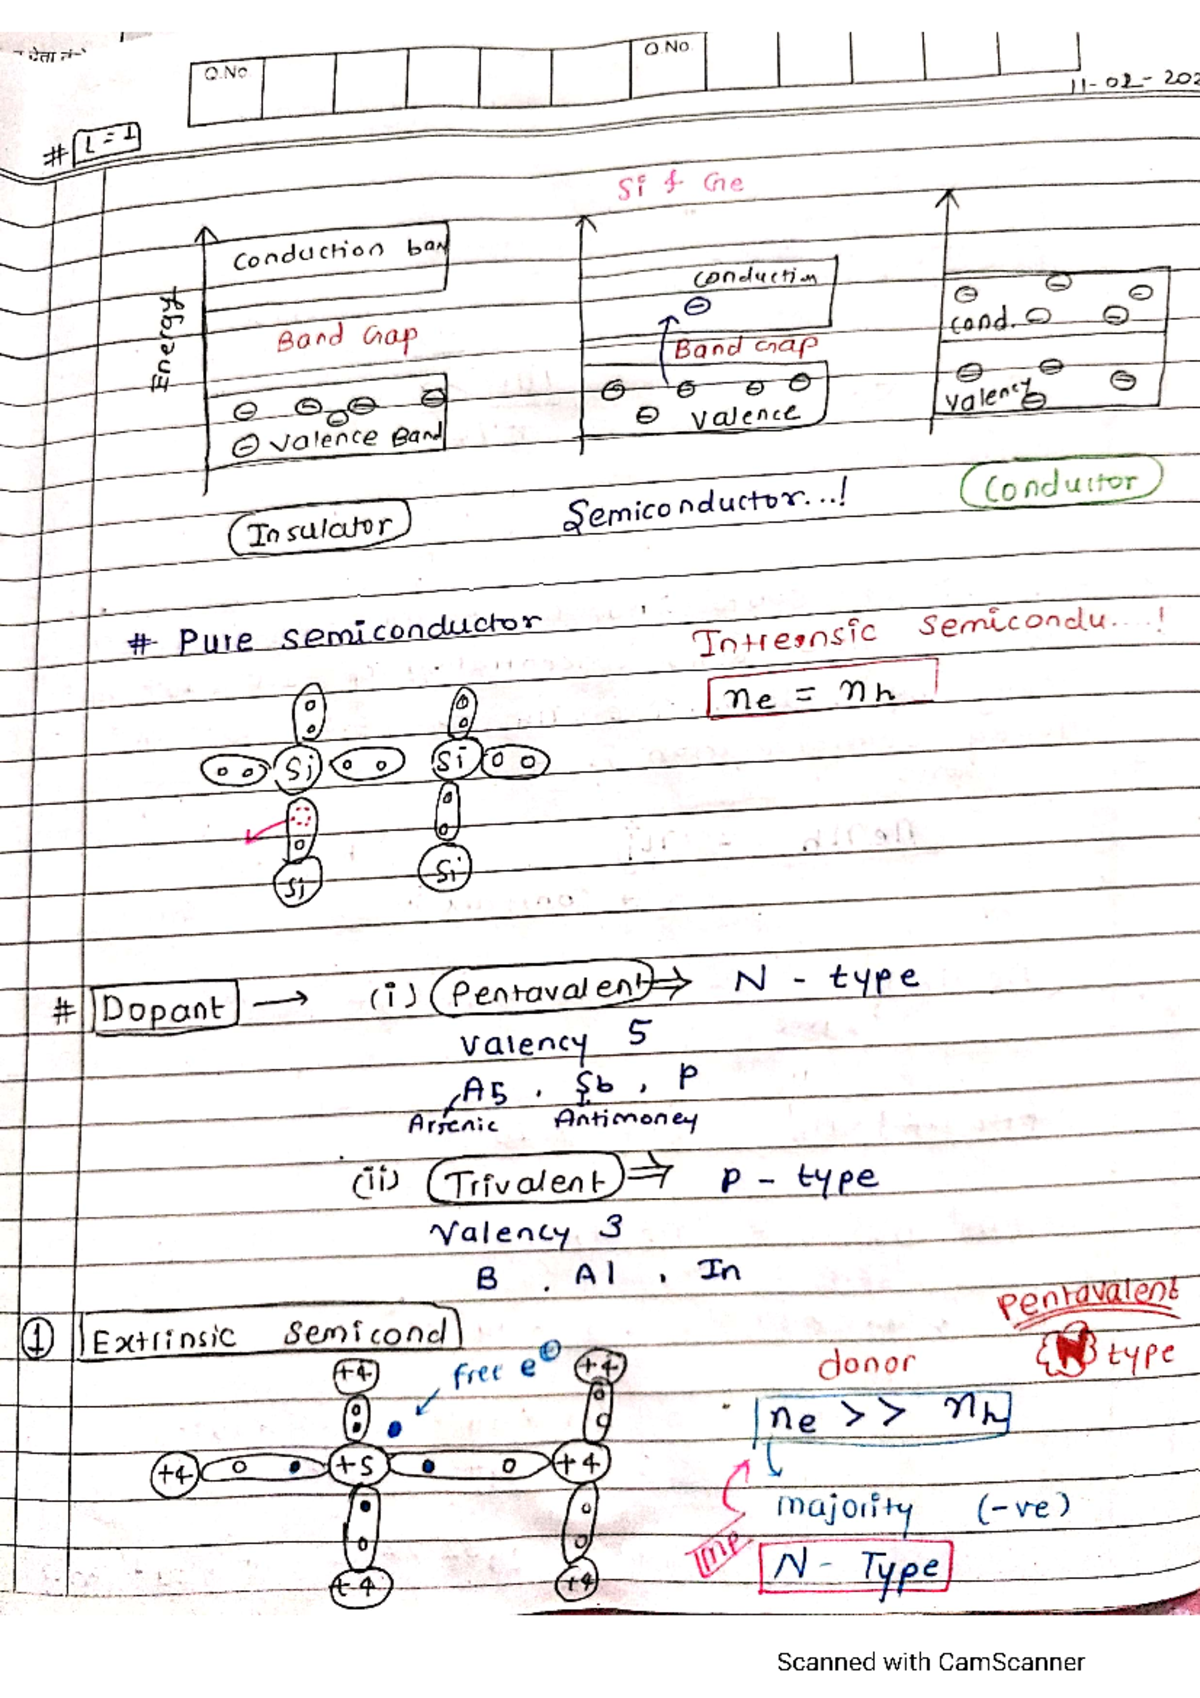 देता
Q.No. Q.No.
11-02-202
# L = 1
Si & Ge
Energy
Conduction ban
Band Gap
Valence Band
Insulator
Conduction
Band Gap
Valence
Semiconductor...!
Cond.
Valency
Conductor
# Pure semiconductor
Intrensic Semicondu....!
ne = nh
Si Si
Si Si
# Dopant → (i) Pentavalent ⇒ N - type
Valency 5
As , Sb , P
Arsenic Antimoney
(ii) Trivalent ⇒ P - type
Valency 3
B , Al , In
Pentavalent
N type
1 Extrinsic Semicond
donor
+4 free e⊖ +4
ne >> nh
+4 +5 +4
majority (-ve)
Imp
N - Type
+4 +4
Scanned with CamScanner